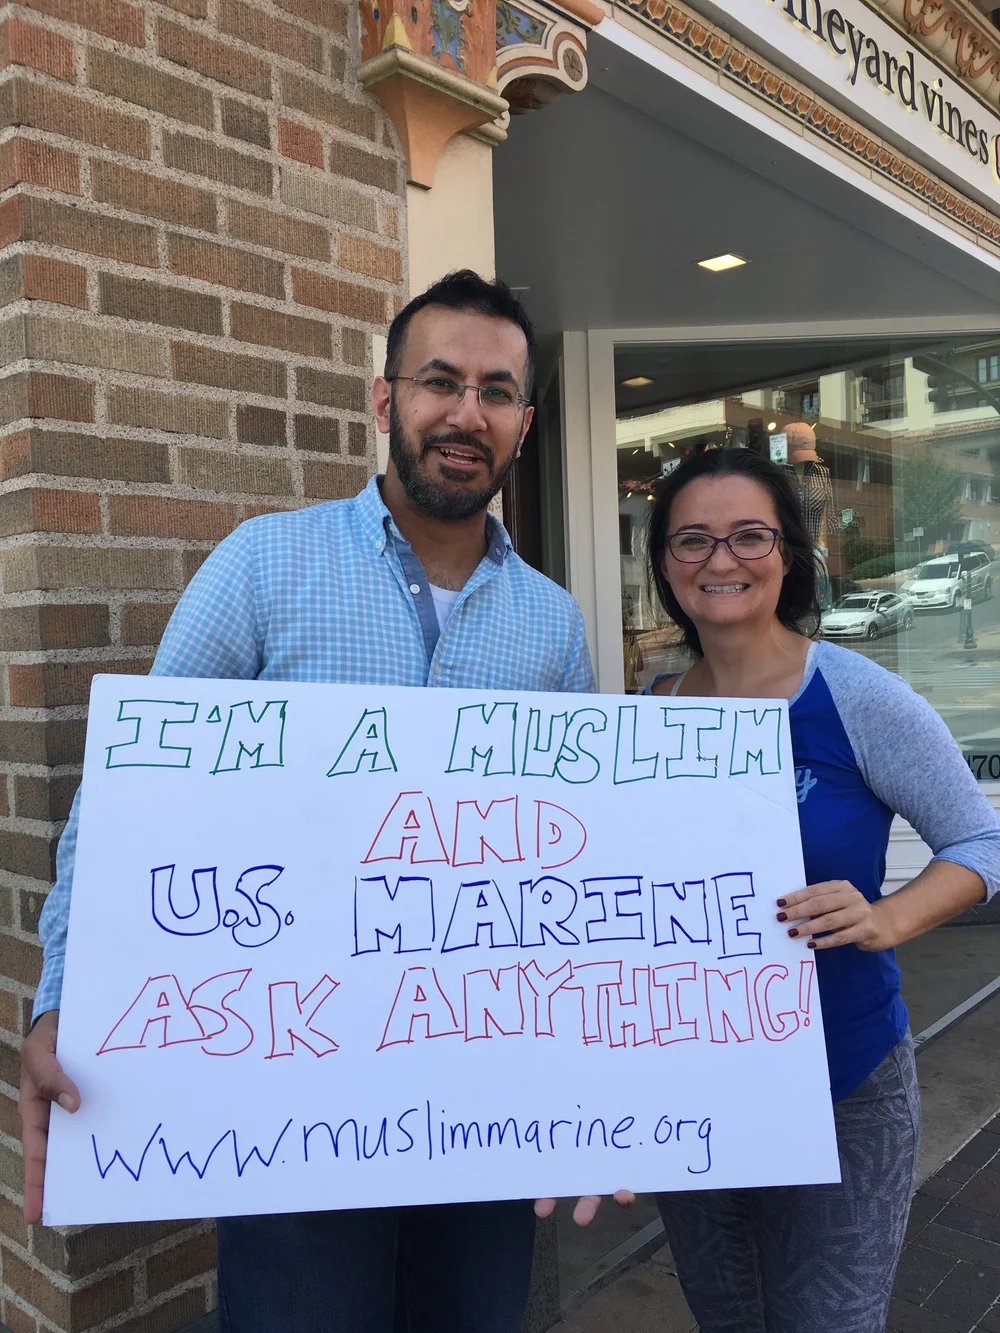 vineyard vines
I'M A MUSLIM
AND
U.S. MARINE
ASK ANYTHING!
www.muslimmarine.org
70